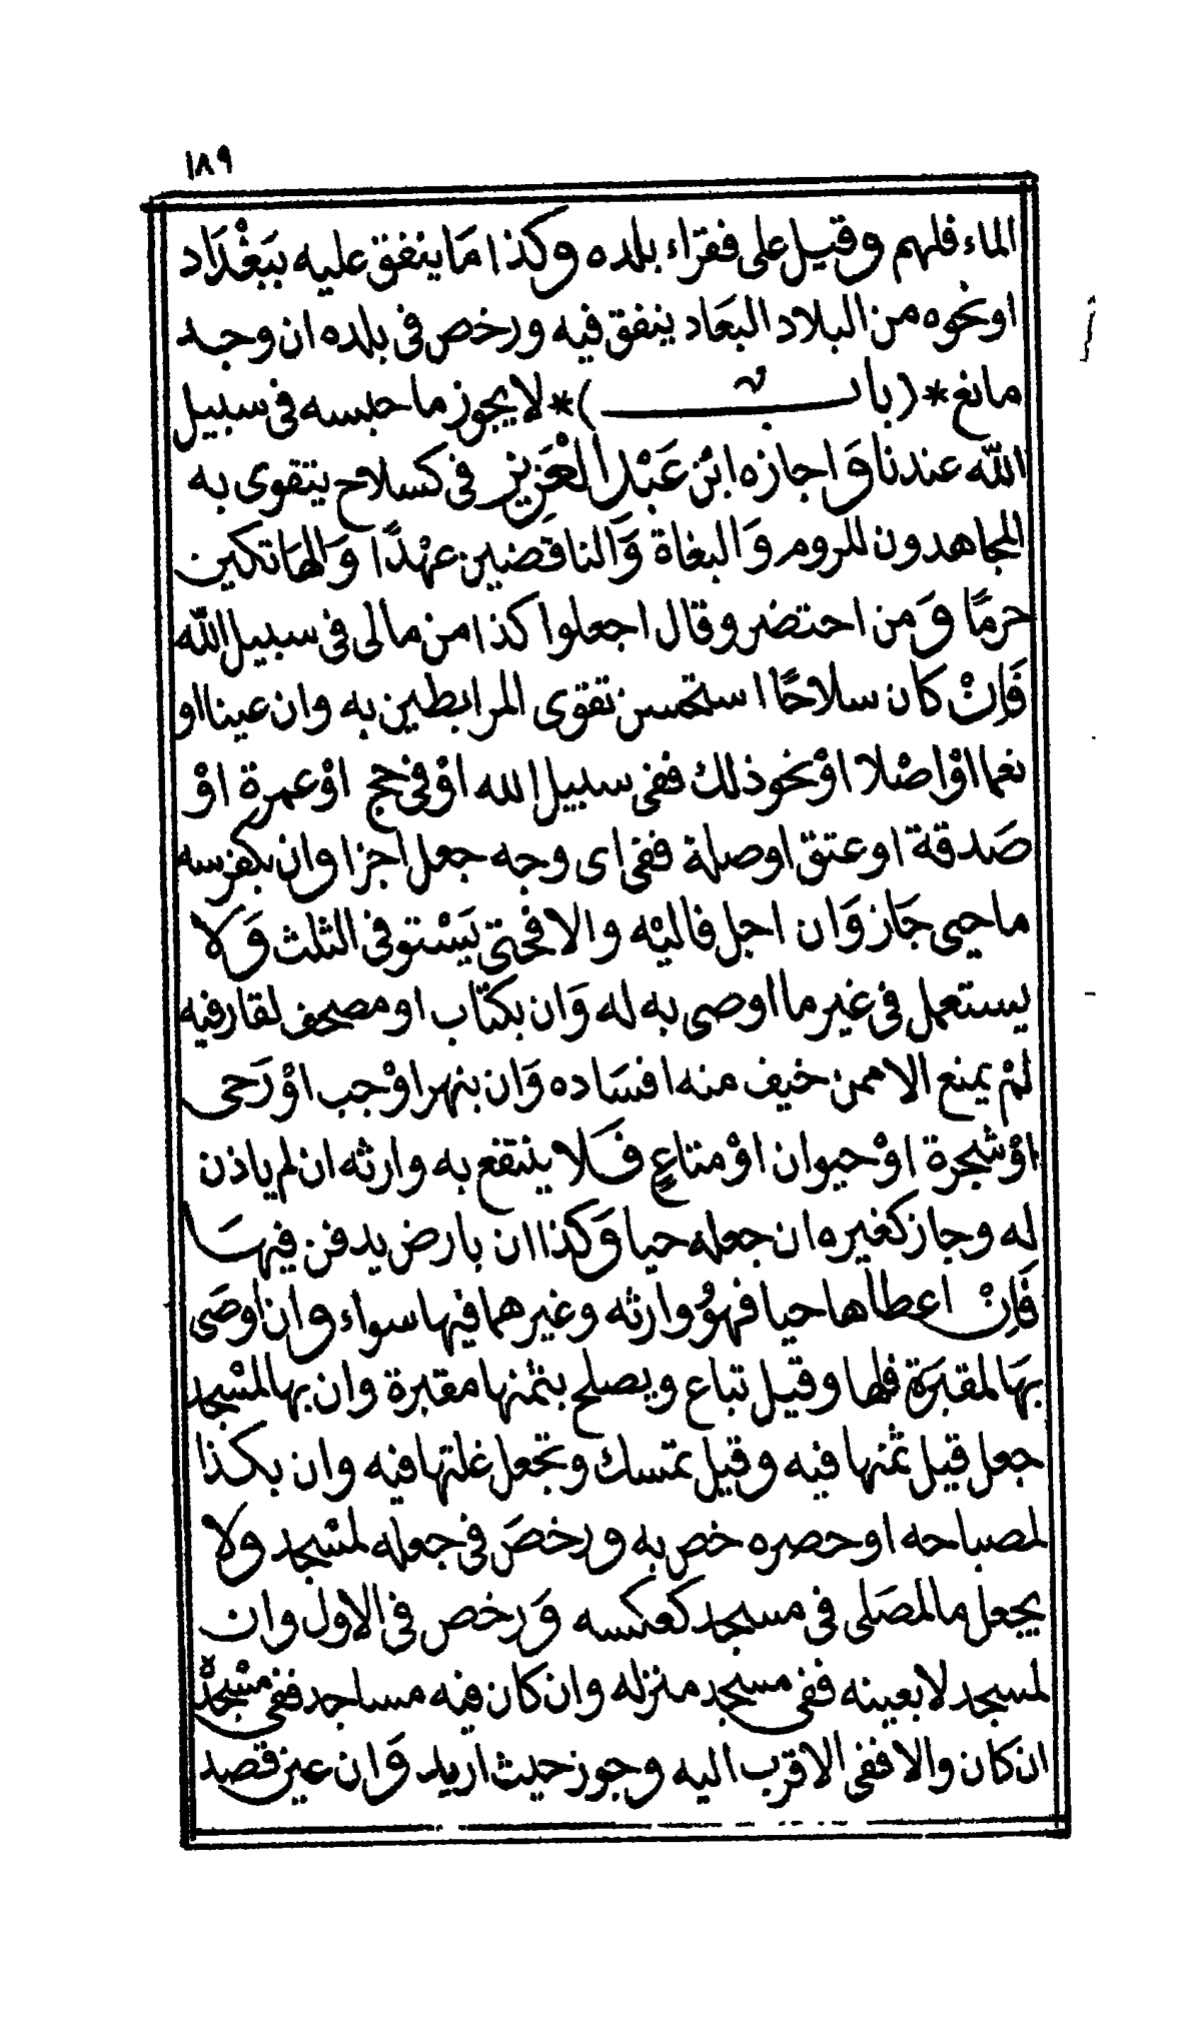 ١٨٩
الماء فلهم وقيل على فقراء بلده وكذا مَا ينفق عليه ببَغْدَاد
او نحوه من البلاد البعَاد ينفق فيه ورخص فى بلده ان وجد
مانع *(باب)* لا يجوز ما حبسه فى سبيل
الله عندنا وَاجازه ابن عَبْد العَزِيز فى كسلاح يتقوى به
المجاهدون للروم وَالبغاة وَالناقضين عهْدًا وَالهَاتكين
حرمًا وَمن احتضر وقال اجعلوا كذا من مالى فى سبيل الله
فَاِنْ كان سلاحًا استحسن تقوى المرابطين به وان عينا او
نعما اوْ اصْلا اوْ نحو ذلك ففى سبيل الله اوْ فى حج اوْ عمرة اوْ
صَدقة او عتق او صلة ففى اى وجه جعل اجزا وان بكفرسه
ما حيى جَاز وَان اجل فاليْه والا فحتى يَسْتوفى الثلث وَلا
يستعمل فى غير ما اوصى به له وَان بكتاب او مصحف لقار فيه
لمْ يمنع الا ممن خيف منه افسَاده وَان بنهر اوْ جب اوْ رَحى
اوْ شجرة اوْ حيوان اوْ متاعٍ فَلا ينتفع به وارثه ان لم ياذن
له وجاز كغيره ان جعله حيا وَكذا ان بارض يدفن فيهَا
فَاِنْ اعطاها حيا فهوُ وارثه وغيرهما فيها سواء وان اوصَى
بهَا لمقبَرَة فلها وقيل تباع ويصلح بثمنها مقبرة وان بها لمسْجد
جعل قيل ثمنها فيه وقيل تمسك وتجعل غلتها فيه وان بكذا
لمصباحه او حصره خص به ورخصَ فى جعله لمسْجد ولا
يجعل ما لمصَلى فى مسجد كعكسه وَرخص فى الاول وان
لمسجد لا بعينه ففى مسجد منزله وان كان فيه مساجد ففى مسْجدْ
ان كان والا ففى الاقرب اليه وجوز حيث اريد وَان عين قصد